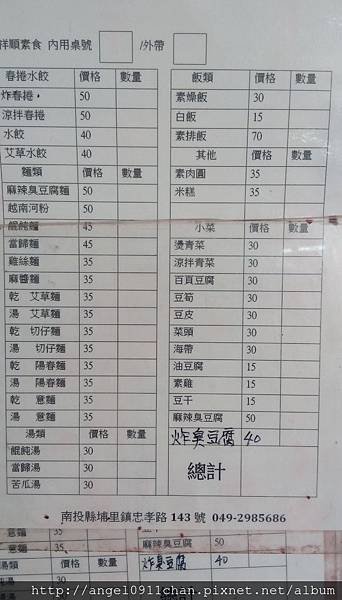 祥順素食 內用桌號 /外帶
春捲水餃 價格 數量
炸春捲 50
涼拌春捲 50
水餃 40
艾草水餃 40
麵類 價格 數量
麻辣臭豆腐麵 50
越南河粉 50
餛飩麵 45
當歸麵 45
雞絲麵 35
麻醬麵 35
乾 艾草麵 35
湯 艾草麵 35
乾 切仔麵 35
湯 切仔麵 35
乾 陽春麵 35
湯 陽春麵 35
乾 意麵 35
湯 意麵 35
湯類 價格 數量
餛飩湯 30
當歸湯 30
苦瓜湯 30
飯類 價格 數量
素燥飯 30
白飯 15
素排飯 70
其他 價格 數量
素肉圓 35
米糕 35
小菜 價格 數量
燙青菜 30
涼拌青菜 30
百頁豆腐 30
豆筍 30
豆皮 30
菜頭 30
海帶 30
油豆腐 15
素雞 15
豆干 15
麻辣臭豆腐 50
炸臭豆腐 40
總計
南投縣埔里鎮忠孝路 143 號 049-2985686
意麵 35
意麵 35
湯類 價格 數量
湯 30
麻辣臭豆腐 50
炸臭豆腐 40
http://angel0911chan.pixnet.net/album